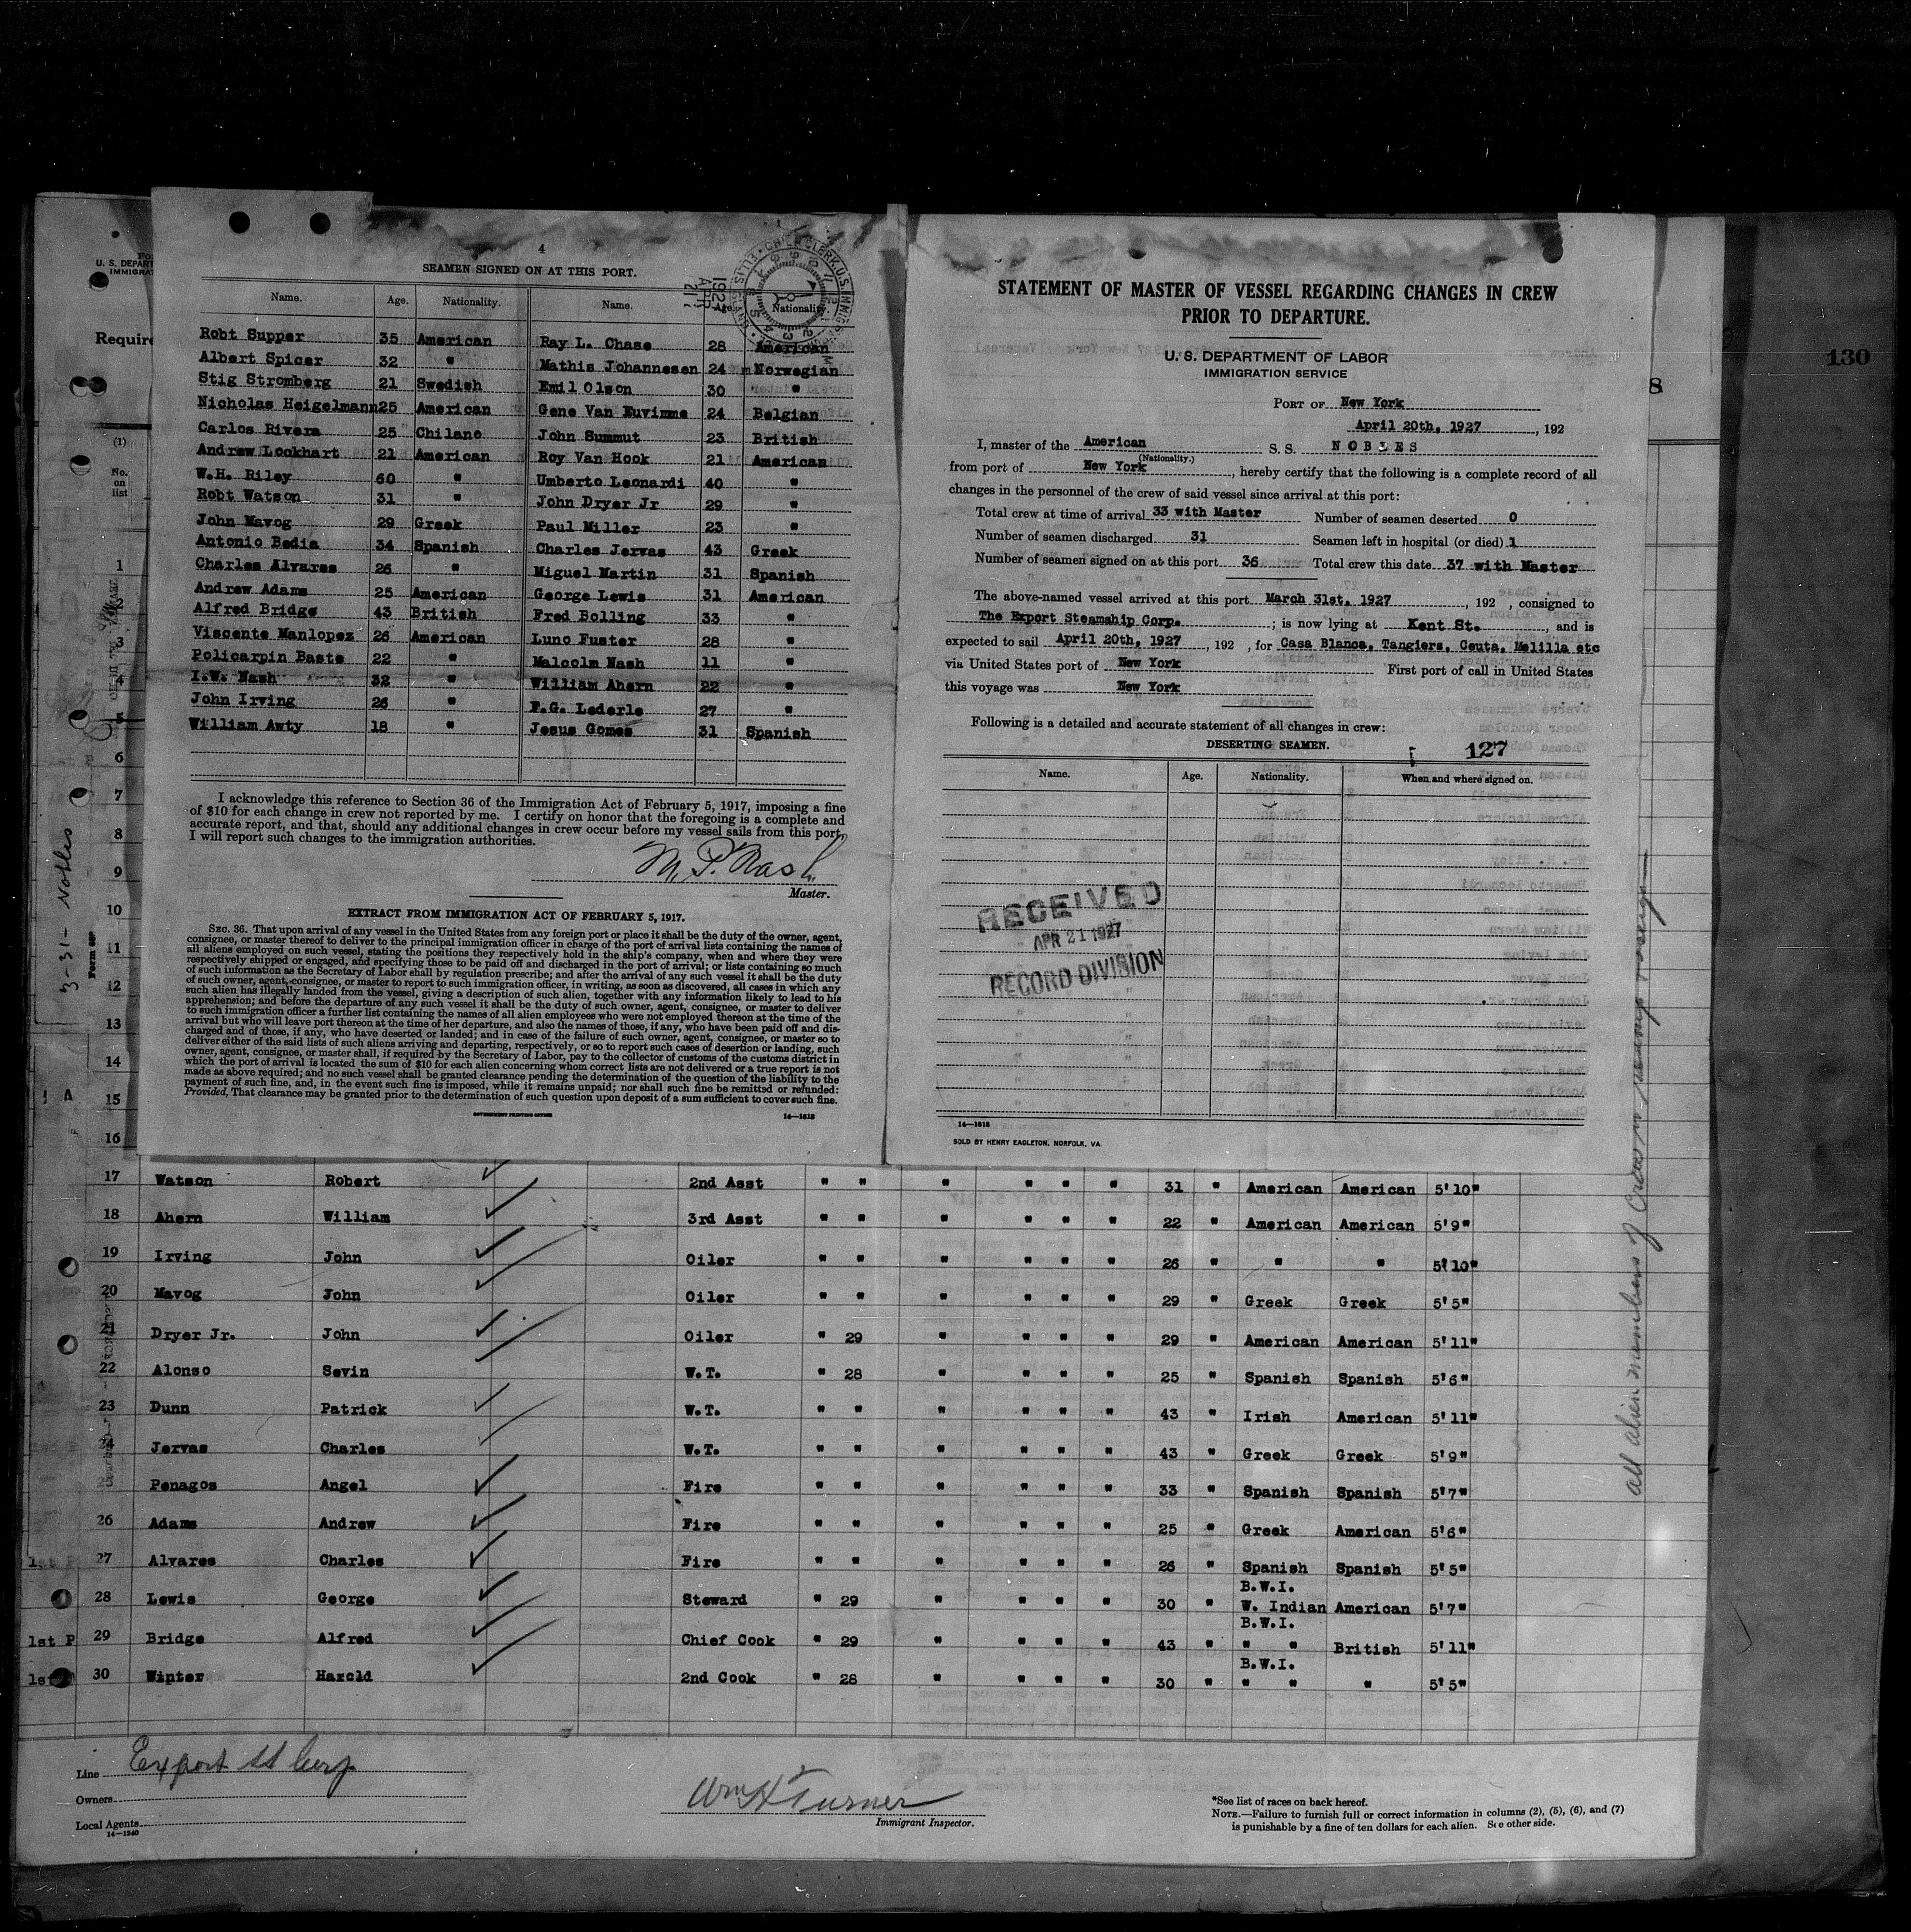 4
SEAMEN SIGNED ON AT THIS PORT.
Name. Age. Nationality. Name. Age. Nationality.
Robt Supper 35 American Ray L. Chase 28 American
Albert Spicer 32 " Mathis Johannesen 24 Norwegian
Stig Stromberg 21 Swedish Emil Olson 30 "
Nicholas Heigelmann 25 American Gene Van Euvimme 24 Belgian
Carlos Rivera 25 Chilano John Summut 23 British
Andrew Lockhart 21 American Roy Van Hook 21 American
W.H. Riley 60 " Umberto Leonardi 40 "
Robt Watson 31 " John Dryer Jr 29 "
John Mavog 29 Greek Paul Miller 23 "
Antonio Bedia 34 Spanish Charles Jervas 43 Greek
Charles Alvares 26 " Miguel Martin 31 Spanish
Andrew Adams 25 American George Lewis 31 American
Alfred Bridge 43 British Fred Bolling 33 "
Viscente Manlopez 26 American Luno Fuster 28 "
Policarpin Baste 22 " Malcolm Nash 11 "
I.W. Nash 32 " William Ahern 22 "
John Irving 26 " F.G. Lederle 27 "
William Awty 18 " Jesus Gomes 31 Spanish
I acknowledge this reference to Section 36 of the Immigration Act of February 5, 1917, imposing a fine
of $10 for each change in crew not reported by me. I certify on honor that the foregoing is a complete and
accurate report, and that, should any additional changes in crew occur before my vessel sails from this port,
I will report such changes to the immigration authorities.
M. P. Nash
Master.
EXTRACT FROM IMMIGRATION ACT OF FEBRUARY 5, 1917.
SEC. 36. That upon arrival of any vessel in the United States from any foreign port or place it shall be the duty of the owner, agent,
consignee, or master thereof to deliver to the principal immigration officer in charge of the port of arrival lists containing the names of
all aliens employed on such vessel, stating the positions they respectively hold in the ship's company, when and where they were
respectively shipped or engaged, and specifying those to be paid off and discharged in the port of arrival; or lists containing so much
of such information as the Secretary of Labor shall by regulation prescribe; and after the arrival of any such vessel it shall be the duty
of such owner, agent, consignee, or master to report to such immigration officer, in writing, as soon as discovered, all cases in which any
such alien has illegally landed from the vessel, giving a description of such alien, together with any information likely to lead to his
apprehension; and before the departure of any such vessel it shall be the duty of such owner, agent, consignee, or master to deliver
to such immigration officer a further list containing the names of all alien employees who were not employed thereon at the time of the
arrival but who will leave port thereon at the time of her departure, and also the names of those, if any, who have been paid off and dis-
charged and of those, if any, who have deserted or landed; and in case of the failure of such owner, agent, consignee, or master so to
deliver either of the said lists of such aliens arriving and departing, respectively, or so to report such cases of desertion or landing, such
owner, agent, consignee, or master shall, if required by the Secretary of Labor, pay to the collector of customs of the customs district in
which the port of arrival is located the sum of $10 for each alien concerning whom correct lists are not delivered or a true report is not
made as above required; and no such vessel shall be granted clearance pending the determination of the question of the liability to the
payment of such fine, and, in the event such fine is imposed, while it remains unpaid; nor shall such fine be remitted or refunded:
Provided, That clearance may be granted prior to the determination of such question upon deposit of a sum sufficient to cover such fine.
GOVERNMENT PRINTING OFFICE 14—1618
STATEMENT OF MASTER OF VESSEL REGARDING CHANGES IN CREW
PRIOR TO DEPARTURE.
U. S. DEPARTMENT OF LABOR
IMMIGRATION SERVICE
PORT OF New York
April 20th, 1927, 192
I, master of the American S. S. NOBLES
(Nationality.)
from port of New York, hereby certify that the following is a complete record of all
changes in the personnel of the crew of said vessel since arrival at this port:
Total crew at time of arrival 33 with Master Number of seamen deserted 0
Number of seamen discharged 31 Seamen left in hospital (or died) 1
Number of seamen signed on at this port 36 Total crew this date 37 with Master
The above-named vessel arrived at this port March 31st, 1927, 192 , consigned to
The Export Steamship Corp. ; is now lying at Kent St. , and is
expected to sail April 20th, 1927, 192 , for Casa Blanca, Tangiers, Ceuta, Melilla etc
via United States port of New York First port of call in United States
this voyage was New York
Following is a detailed and accurate statement of all changes in crew:
DESERTING SEAMEN. 127
Name. Age. Nationality. When and where signed on.
RECEIVED
APR 21 1927
RECORD DIVISION
14—1618
SOLD BY HENRY EAGLETON, NORFOLK, VA.
130
8
U. S. DEPART
IMMIGRAT
Require
(1)
No.
on
list
1
3
4
5
6
7
8
9
10
11
12
13
14
15
16
3-31- Nobles
17 Watson Robert 2nd Asst " " " " " " 31 " American American 5'10"
18 Ahern William 3rd Asst " " " " " " 22 " American American 5'9"
19 Irving John Oiler " " " " " " 26 " " " 5'10"
20 Mavog John Oiler " " " " " " 29 " Greek Greek 5'5"
21 Dryer Jr. John Oiler " 29 " " " " 29 " American American 5'11"
22 Alonso Sevin W.T. " 28 " " " " 25 " Spanish Spanish 5'6"
23 Dunn Patrick W.T. " " " " " " 43 " Irish American 5'11"
24 Jervas Charles W.T. " " " " " " 43 " Greek Greek 5'9"
25 Penagos Angel Fire " " " " " " 33 " Spanish Spanish 5'7"
26 Adams Andrew Fire " " " " " " 25 " Greek American 5'6"
27 Alvares Charles Fire " " " " " " 26 " Spanish Spanish 5'5"
28 Lewis George Steward " 29 " " " " 30 " B.W.I. W. Indian American 5'7"
29 Bridge Alfred Chief Cook " 29 " " " " 43 " B.W.I. " " British 5'11"
30 Winter Harold 2nd Cook " 28 " " " " 30 " B.W.I. " " " 5'5"
1st P
all alien members of crew
Line Export SS Corp
Owners
Local Agents
14—1240
Wm H Turner
Immigrant Inspector.
*See list of races on back hereof.
NOTE.—Failure to furnish full or correct information in columns (2), (5), (6), and (7)
is punishable by a fine of ten dollars for each alien. See other side.